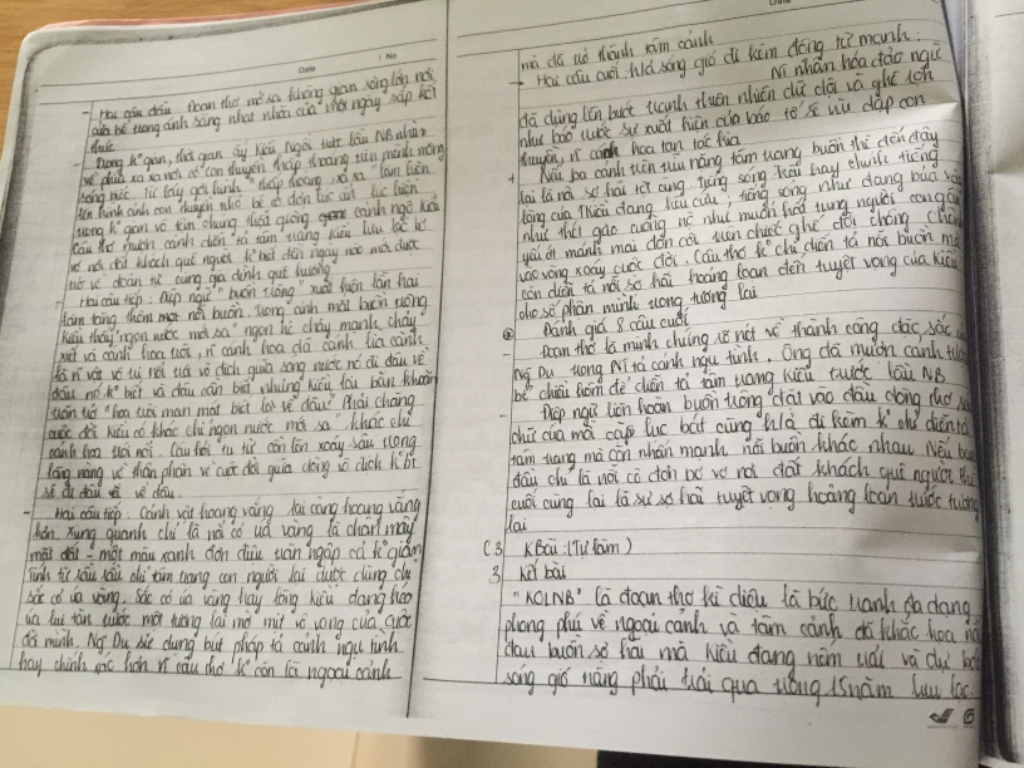 Date : No
- Hai câu đầu: Đoạn thơ mở ra không gian rộng lớn nơi
cửa bể trong ánh sáng nhạt nhòa của một ngày sắp kết
thúc
- Trong k° gian, thời gian ấy Kiều ngồi trước lầu NB nhìn
về phía xa xa nơi có con thuyền thấp thoáng trên mênh mông
sóng biếc. Từ láy gợi hình "thấp thoáng, xa xa" làm hiện
lên hình ảnh con thuyền nhỏ bé cô đơn lúc ẩn lúc hiện
trong k° gian vô tận chung thật giống cảnh ngộ Kiều
Câu thơ mượn cảnh diễn tả tâm trạng Kiều lưu lạc bơ
vơ nơi đất khách quê người k° biết đến ngày nào mới được
trở về đoàn tụ cùng gia đình quê hương
- Hai câu tiếp: Điệp ngữ "buồn trông" xuất hiện lần hai
làm tăng thêm nỗi buồn. Trong ánh mắt buồn trông
Kiều thấy "ngọn nước mới sa" ngọn hé chảy mạnh, chảy
xiết và cánh hoa trôi, n~ cánh hoa đã cánh lìa cành
là n~ vật vô tri nổi trôi vô đích giữa sóng nước nó đi đâu về
đâu nó k° biết và đâu cần biết nhưng Kiều lại băn khoăn
trăn trở "hoa trôi man mát biết là về đâu" Phải chăng
cuộc đời Kiều có khác chi ngọn nước mới sa, khác chi
cánh hoa trôi nổi. Câu hỏi tu từ còn lên xoáy sâu trong
lòng nàng về thân phận về cuộc đời giữa dòng vô đích k° bt
sẽ đi đâu về đâu.
- Hai câu tiếp: Cảnh vật hoang vắng lại càng hoang vắng
hơn. Xung quanh chỉ là nội cỏ úa vàng là chân mây
mặt đất - một màu xanh đơn điệu tràn ngập cả k° gian
Tính từ rầu rầu chỉ tâm trạng con người lại được dùng chỉ
sắc cỏ úa vàng. Sắc cỏ úa vàng hay lòng Kiều đang héo
úa lụi tàn trước một tương lai mờ mịt vô vọng của cuộc
đời mình. Ng Du sử dụng bút pháp tả cảnh ngụ tình
hay chính xác hơn n~ câu thơ k° còn là ngoại cảnh
Date
mà đã trở thành tâm cảnh
- Hai câu cuối: h/a sóng gió đi kèm động từ mạnh:
NT nhân hóa đảo ngữ
đã dựng lên bức tranh thiên nhiên dữ dội và ghê rợn
như báo trước sự xuất hiện của bão tố sẽ vùi dập con
thuyền, n~ cánh hoa tan tác kia
+ Nếu ba cảnh trên trĩu nặng tâm trạng buồn thì đến đây
lại là nỗi sợ hãi tột cùng. Tiếng sóng kêu hay chính tiếng
lòng của TKiều đang kêu cứu; tiếng sóng như đang bủa vây
như thét gào cuồng nộ như muốn hất tung người con gái
yếu ớt mảnh mai đơn côi trên chiếc ghế đời chông chênh
vào vòng xoáy cuộc đời. Câu thơ k° chỉ diễn tả nỗi buồn mà
còn diễn tả nỗi sợ hãi hoảng loạn đến tuyệt vọng của Kiều
cho số phận mình trong tương lai
* Đánh giá 8 câu cuối
- Đoạn thơ là minh chứng rõ nét về thành công đặc sắc
Ng Du trong NT tả cảnh ngụ tình. Ông đã mượn cảnh
bể chiều hôm để diễn tả tâm trạng Kiều trước lầu NB
- Điệp ngữ liên hoàn buồn trông đặt vào đầu dòng thơ
chữ của mỗi cặp lục bát cùng h/a đi kèm k° chỉ diễn tả
tâm trạng mà còn nhấn mạnh nỗi buồn khác nhau Nếu ban
đầu chỉ là nỗi cô đơn bơ vơ nơi đất khách quê người thì
cuối cùng lại là sự sợ hãi tuyệt vọng hoảng loạn trước tương
lai
C3 KBài: (Tự làm)
3 Kết bài
"KOLNB" là đoạn thơ kì diệu là bức tranh đa dạng
phong phú về ngoại cảnh và tâm cảnh đã khắc họa nỗi
đau buồn sợ hãi mà Kiều đang nếm trải và dự báo
sóng gió nàng phải trải qua trong 15 năm lưu lạc.